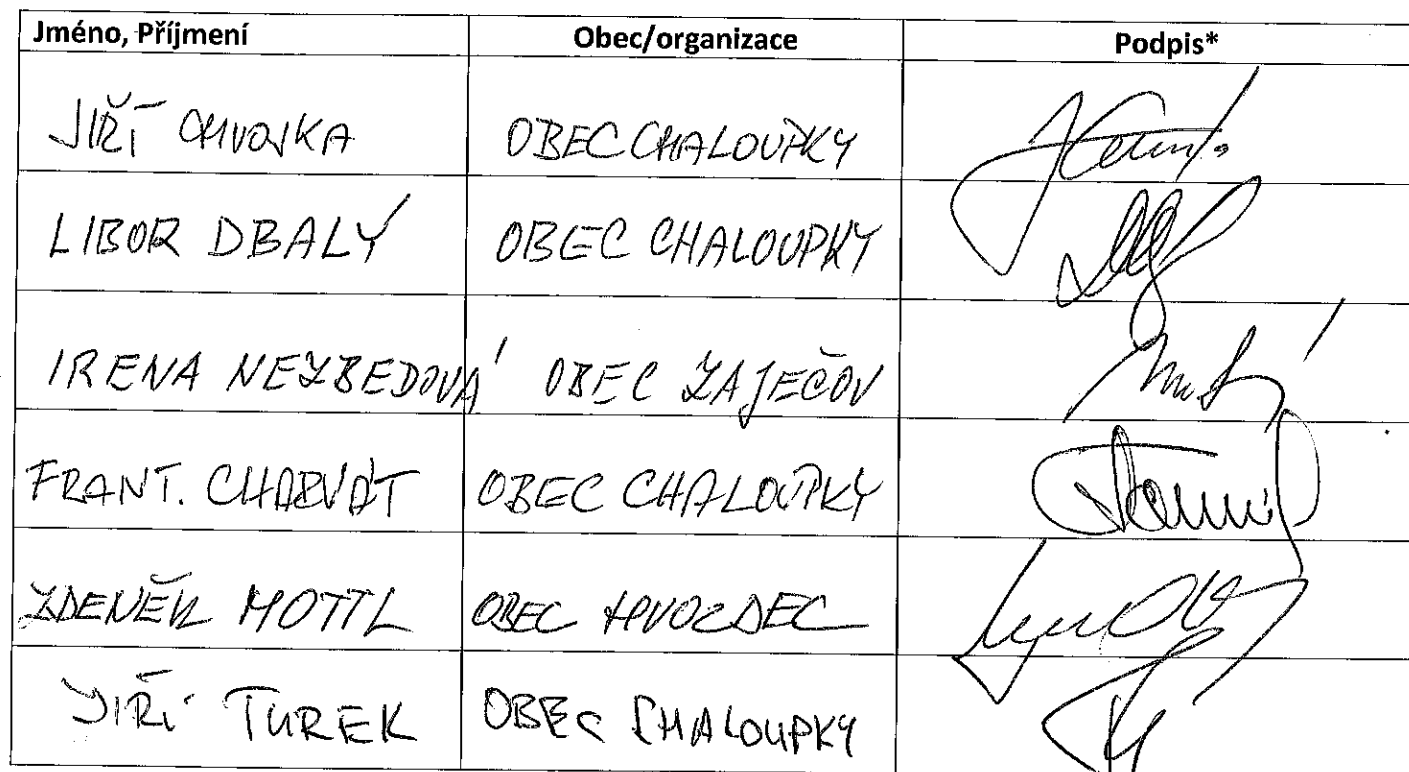 Jméno, Příjmení Obec/organizace Podpis*
JIŘÍ CHVOJKA OBEC CHALOUPKY
LIBOR DBALÝ OBEC CHALOUPKY
IRENA NEZBEDOVÁ OBEC ZAJEČOV
FRANT. CHARVÁT OBEC CHALOUPKY
ZDENĚK MOTTL OBEC HVOZDEC
JIŘÍ TUREK OBEC CHALOUPKY